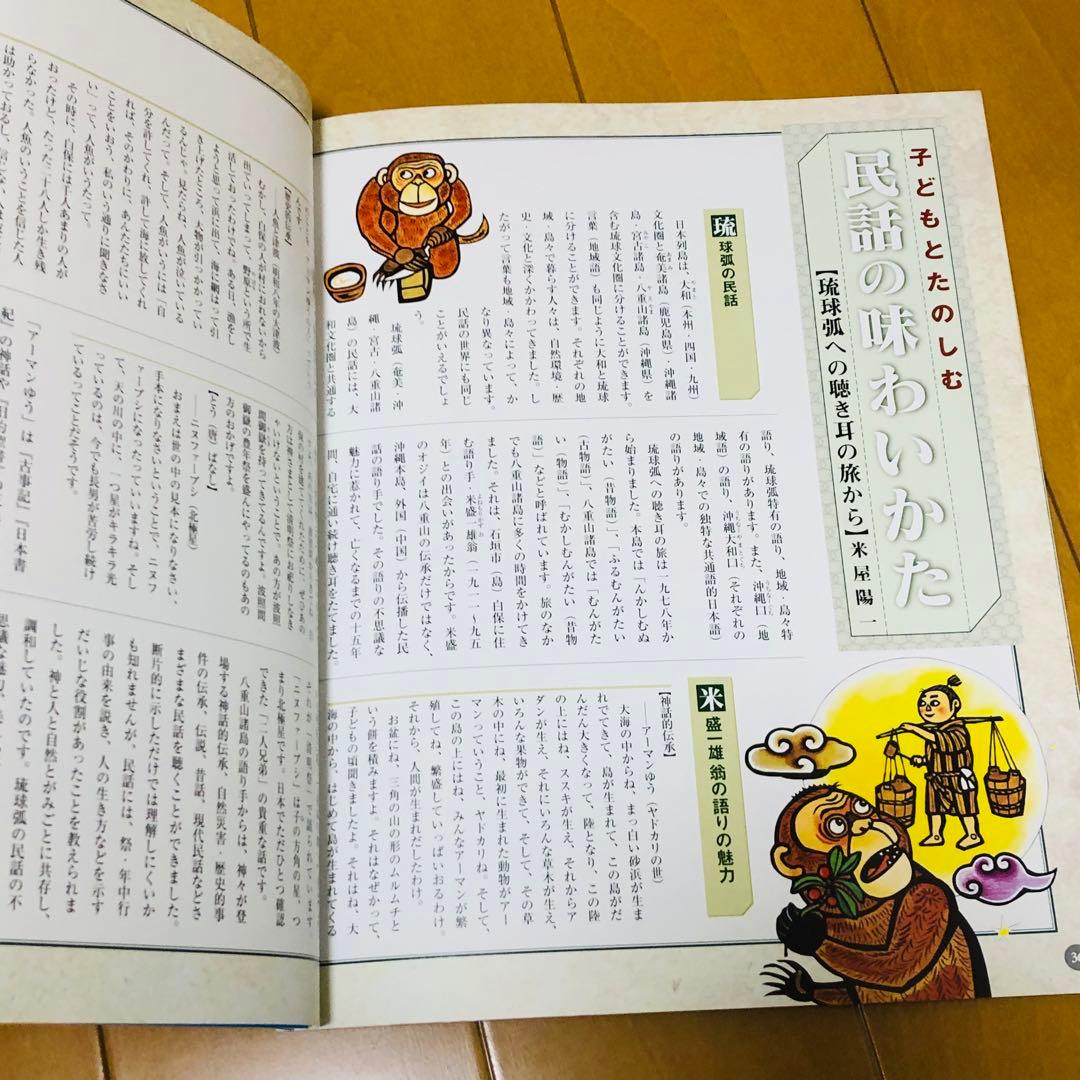 子どもとたのしむ
民話の味わいかた
【琉球弧への聴き耳の旅から】米屋陽一
琉球弧の民話
日本列島は、大和(本州・四国・九州)
文化圏と奄美諸島(鹿児島県)・沖縄諸
島・宮古諸島・八重山諸島(沖縄県)を
含む琉球文化圏に分けることができます。
言葉(地域語)も同じように大和と琉球
に分けることができます。それぞれの地
域・島々で暮らす人々は、自然環境・歴
史・文化と深くかかわってきました。し
たがって言葉も地域・島々によって、か
なり異なっています。
民話の世界にも同じ
ことがいえるでしょ
う。
琉球弧(奄美・沖
縄・宮古・八重山諸
島)の民話には、大
和文化圏と共通する
語り、琉球弧特有の語り、地域・島々特
有の語りがあります。また、沖縄口(地
域語)の語り、沖縄大和口(それぞれの
地域・島々での独特な共通語的日本語)
の語りがあります。
琉球弧への聴き耳の旅は一九七八年か
ら始まりました。本島では「んかしむぬ
がたい(昔物語)」、「ふるむんがたい
(古物語)」、八重山諸島では「むんがた
い(物語)」、「むかしむんがたい(昔物
語)」などと呼ばれています。旅のなか
でも八重山諸島に多くの時間をかけてき
ました。それは、石垣市(島)白保に住
む語り手・米盛一雄翁(一九一一〜九五
年)との出会いがあったからです。米盛
のオジイは八重山の伝承だけではなく、
沖縄本島、外国(中国)から伝播した民
話の語り手でした。その語りの不思議な
魅力に惹かれて、亡くなるまでの十五年
間、自宅に通い続け聴き耳をたてました。
米盛一雄翁の語りの魅力
【神話的伝承】
——アーマンゆう(ヤドカリの世)
大海の中からね、まっ白い砂浜が生ま
れでてきて、島が生まれて、この島がだ
んだん大きくなって、陸となり、この陸
の上にはね、ススキが生え、それからア
ダンが生え、それにいろんな草木が生え、
いろんな果物ができて、そして、その草
木の中にね、最初に生まれた動物がアー
マンっていうこと、ヤドカリね。そして、
この島の上にはね、みんなアーマンが繁
殖してね、繁盛していっぱいおるわけ。
それから、人間が生まれだしたわけ。
お盆にね、三角の山の形のムルムチと
いう餅を積みますよ。それはなぜかって、
子どもの頃聞きましたよ。それはね、大
海の中から、はじめて島が生まれてくる
【歴史的伝承】
——人魚と津波(明和八年の大津波)
むかし、白保の人が村におれないから
出ていってしまって、野原という所で生
活しておったのでね、ある日、漁をし
ようと思って浜に出て、海に網はって引
きよげたところ、人魚が引っかかってい
るんじゃ。見たらね、人魚が泣いている
んだって。そして、人魚がいうには「自
分を許してくれ、許して海に放してくれ
れば、そのかわりに、あんたたちにいい
ことをいおう、私のいう通りに聞きなさ
い」って、人魚がいうたって。
その時に、白保には千人あまりの人が
おったけど、たった二十八人しか生き残
らなかった。人魚のいうことを信じた人
は助かっておるし、
方は神さまとして清明祭にお祀りしなき
ゃいけないということで、あの方が波照
間御嶽を持ってきてるんですよ。波照間
御嶽の豊年祭を盛んにやってるのもあの
方のおかげですよ。
【とう(唐)ばなし】
——ニヌファーブシ(北極星)
おまえは世の中の見本になりなさい、
手本になりなさいということで、ニヌフ
ァーブシになったっていいますね。そし
て、天の川の中に、一つ星がキラキラ光
っているのは、今でも長男が苦労し続け
ているってことだそうです。
「アーマンゆう」は『古事記』『日本書
紀』の神話や
「ニヌファーブシ」は子の方角の星、つ
まり北極星です。日本でただひとつ確認
できた「二人兄弟」の貴重な話です。
八重山諸島の語り手からは、神々が登
場する神話的伝承、自然災害・歴史的事
件の伝承、伝説、昔話、現代民話などさ
まざまな民話を聴くことができました。
断片的に示しただけでは理解しにくいか
も知れませんが、民話には、祭・年中行
事の由来を説き、人の生き方などを示す
だいじな役割があったことを教えられま
した。神と人と自然とがみごとに共存し、
調和していたのです。琉球弧の民話の不